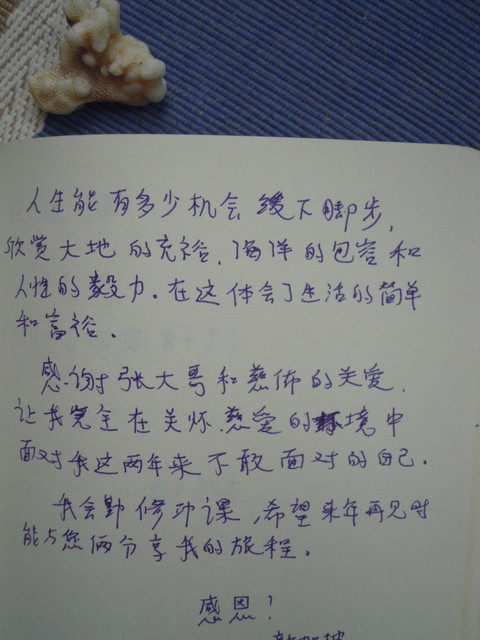 人生能有多少机会缓下脚步,
欣赏大地的充裕.海洋的包容和
人性的毅力.在这体会了生活的简单
和富裕.
感谢张大哥和慈佈的关爱.
让我完全在关怀.慈爱的环境中
面对我这两年来不敢面对的自己.
我会勤修功课,希望来年再见时
能与您俩分享我的旅程.
感恩!